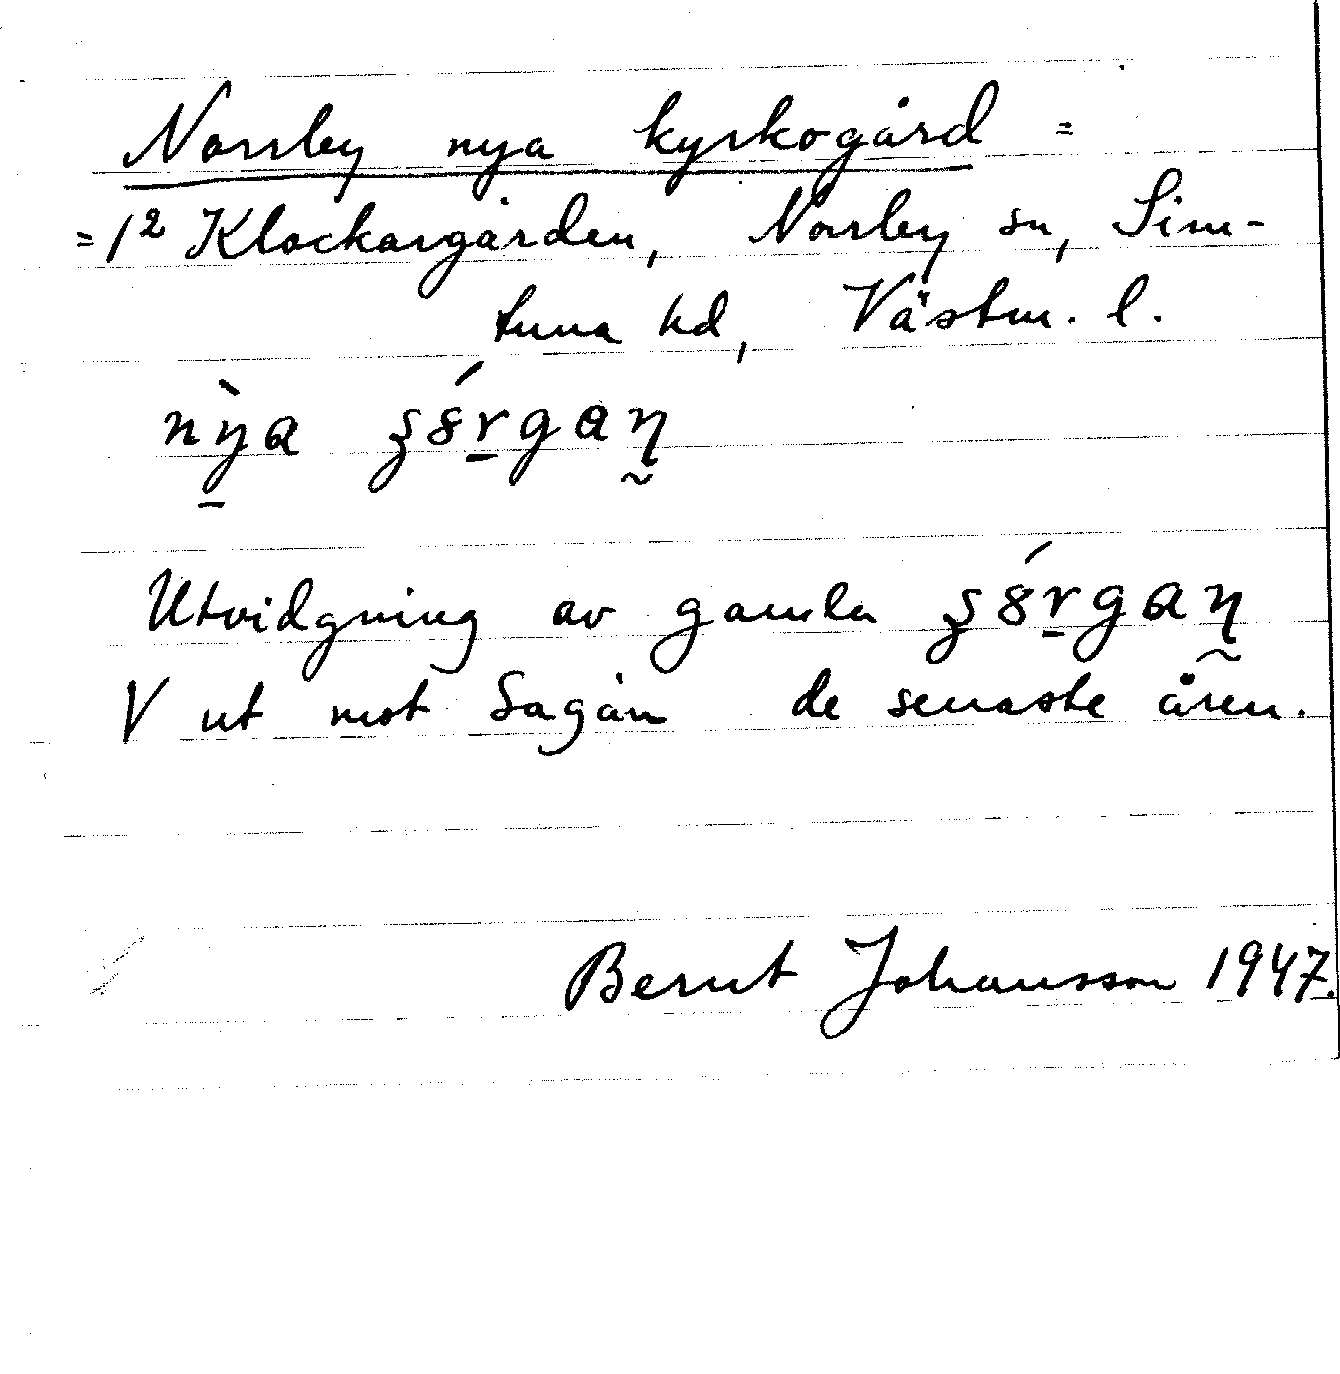 Norrby nya kyrkogård =
= 1² Klockargården, Norrby sn, Sim-
tuna hd, Västm. l.
nỳ̠a
Utvidgning av gamla
V ut mot Sagån de senaste åren.
Bernt Johansson 1947.